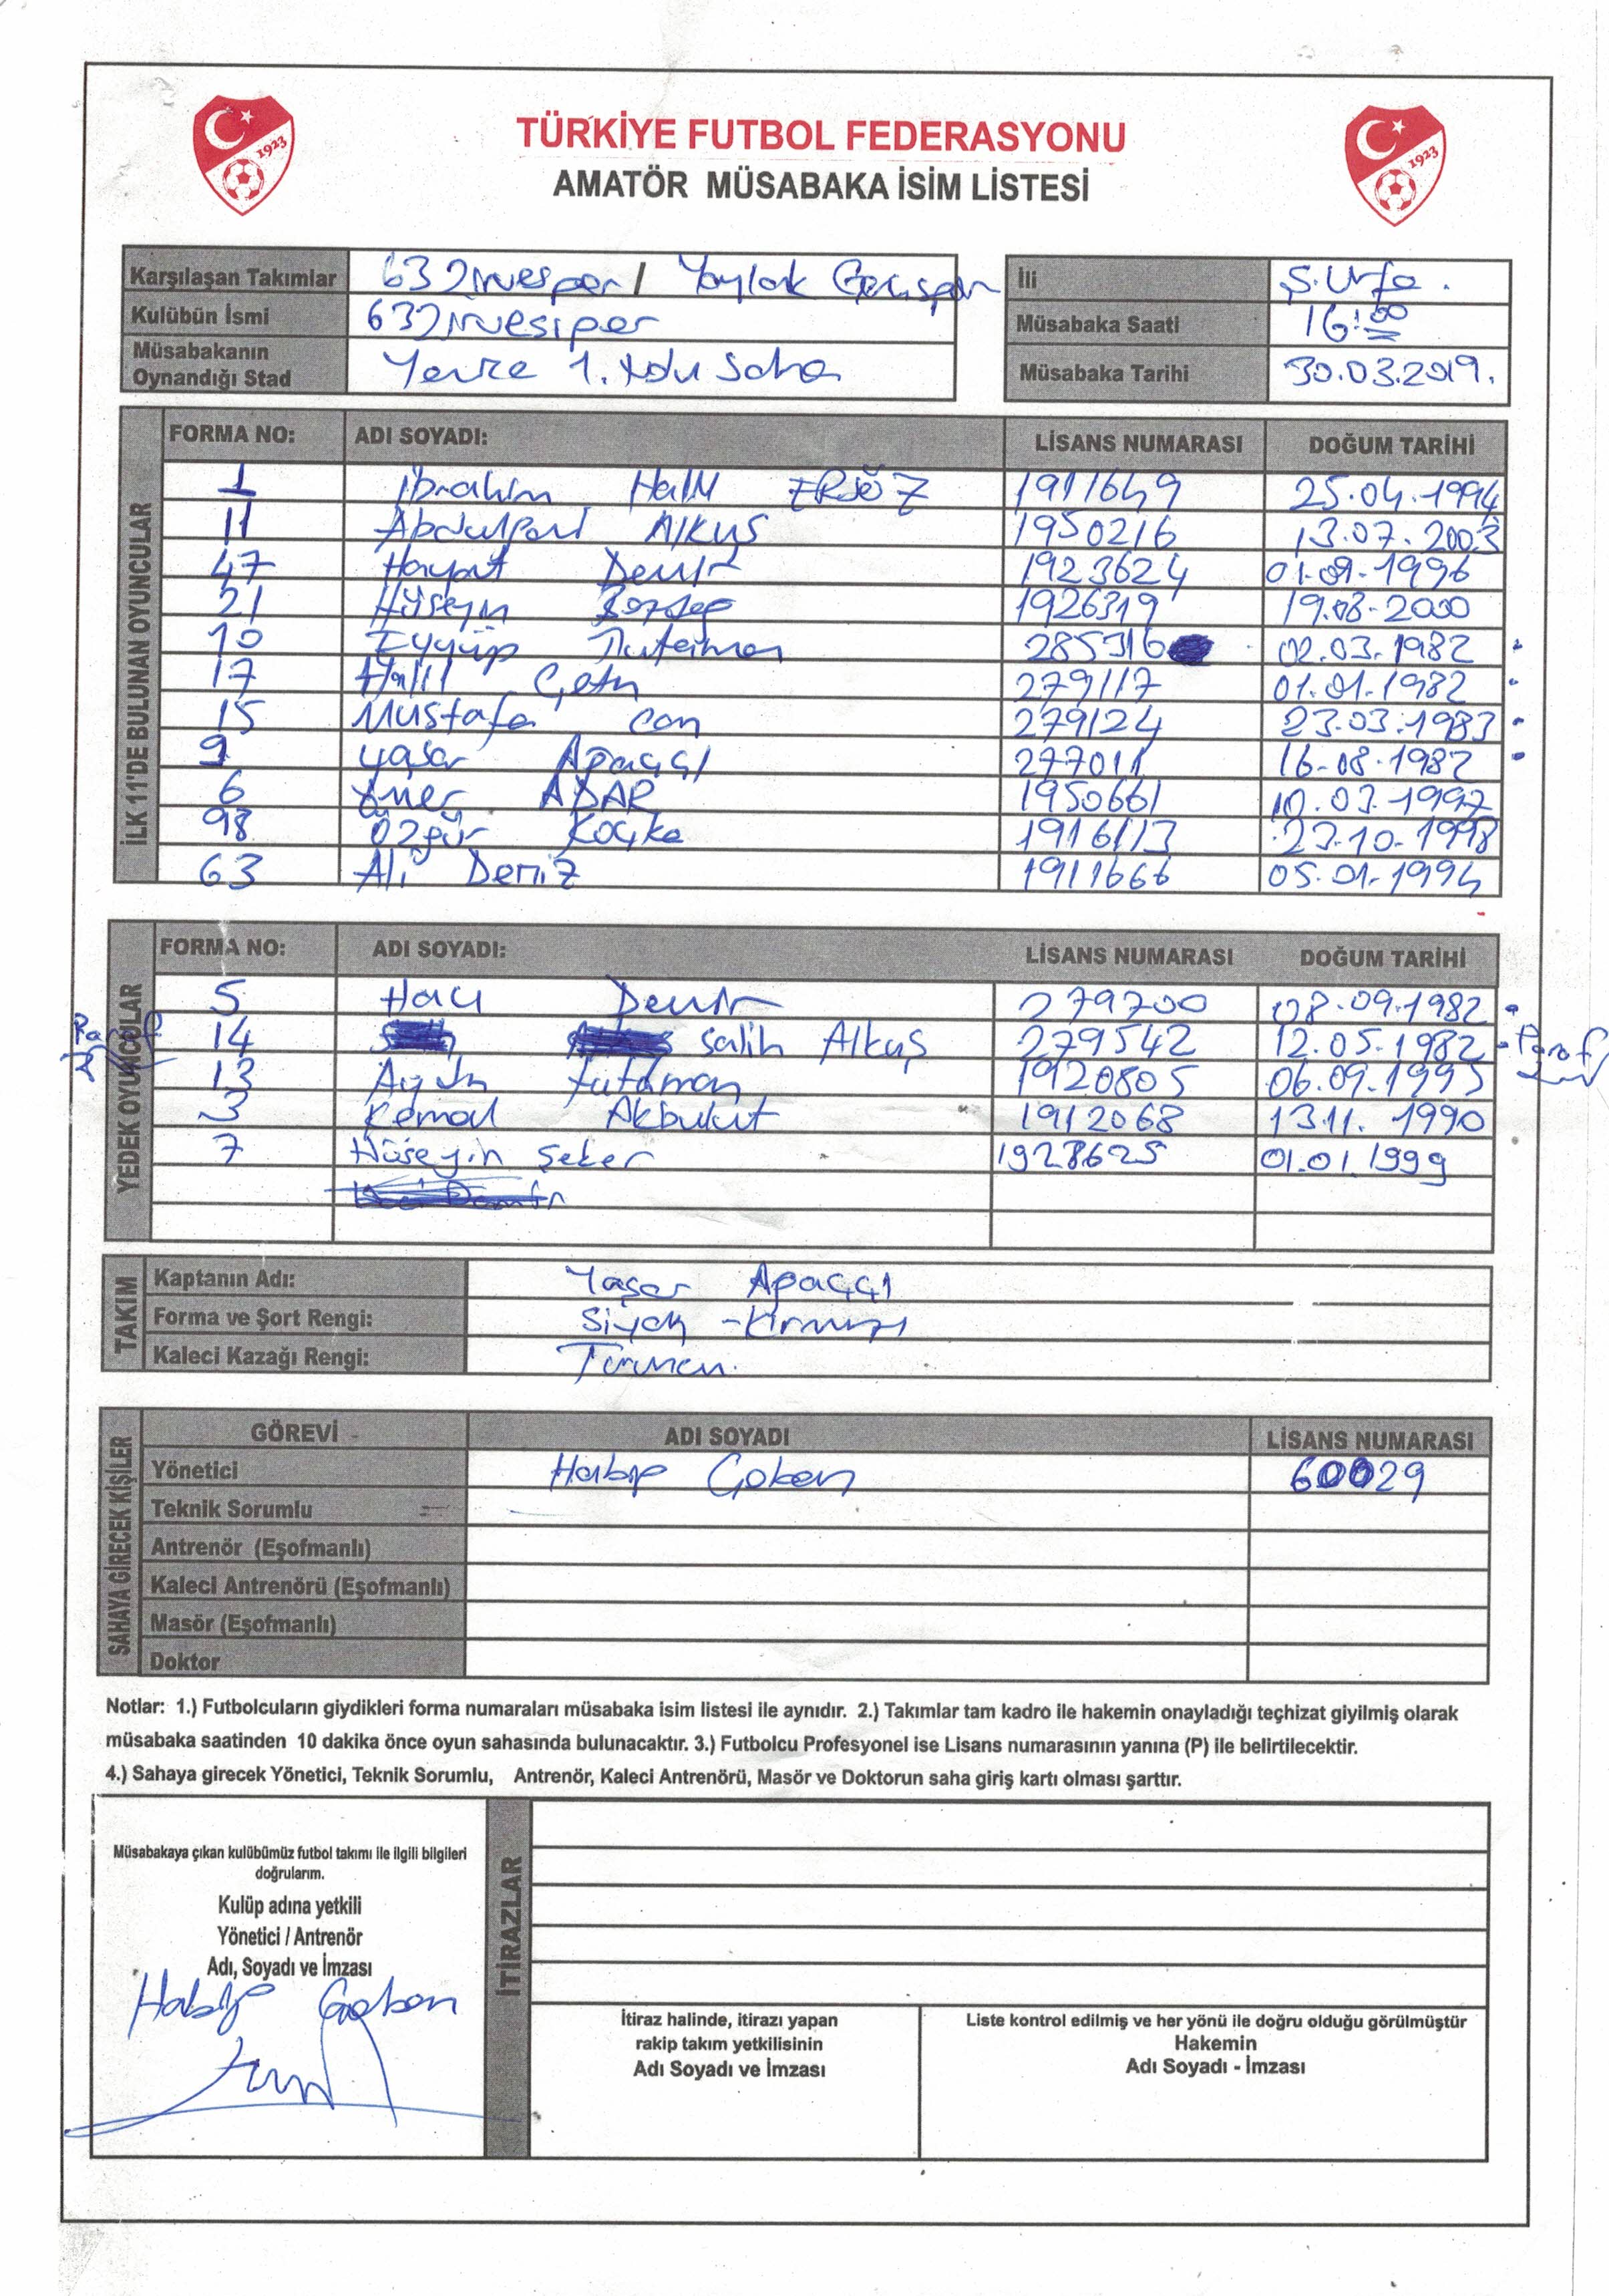 1923
1923
TÜRKİYE FUTBOL FEDERASYONU
AMATÖR MÜSABAKA İSİM LİSTESİ
Karşılaşan Takımlar 63 Zirvespor / Yaylak Gençspor
İli Ş.Urfa.
Kulübün İsmi 63 Zirvespor
Müsabaka Saati 16:00
Müsabakanın Oynandığı Stad 1. Saha
Müsabaka Tarihi 30.03.2019.
İLK 11'DE BULUNAN OYUNCULAR
FORMA NO: ADI SOYADI: LİSANS NUMARASI DOĞUM TARİHİ
1 İbrahim Halil ERSÖZ 1911649 25.04.1994
11 ALKUŞ 1950216 13.07.2003
47 Hayat Demir 1923624 01.09.1996
21 Hüseyin 1926319 19.08-2000
10 Eyyüp 285316 02.03.1982
17 Halil Çetin 279117 01.01.1982
15 Mustafa can 279124 23.03.1983
9 yaşar Apaççı 277011 16-08.1982
6 Ömer 1950661 10.03.1997
98 Özgür Koçka 1916113 23.10.1998
63 Ali Deniz 1911666 05.01.1994
YEDEK OYUNCULAR
FORMA NO: ADI SOYADI: LİSANS NUMARASI DOĞUM TARİHİ
5 Hacı Demir 279700 08.09.1982
Paraf 14 Salih Alkuş 279542 12.05.1982 Paraf
13 Aydın 1920805 06.09.1995
3 Kemal Akbulut 1912068 13.11.1990
7 Hüseyin Şeker 1928625 01.01.1999
TAKIM
Kaptanın Adı: Yaşar Apaççı
Forma ve Şort Rengi: Siyah - Kırmızı
Kaleci Kazağı Rengi: Turuncu.
SAHAYA GİRECEK KİŞİLER
GÖREVİ ADI SOYADI LİSANS NUMARASI
Yönetici Habip Çoban 60029
Teknik Sorumlu
Antrenör (Eşofmanlı)
Kaleci Antrenörü (Eşofmanlı)
Masör (Eşofmanlı)
Doktor
Notlar: 1.) Futbolcuların giydikleri forma numaraları müsabaka isim listesi ile aynıdır. 2.) Takımlar tam kadro ile hakemin onayladığı teçhizat giyilmiş olarak
müsabaka saatinden 10 dakika önce oyun sahasında bulunacaktır. 3.) Futbolcu Profesyonel ise Lisans numarasının yanına (P) ile belirtilecektir.
4.) Sahaya girecek Yönetici, Teknik Sorumlu, Antrenör, Kaleci Antrenörü, Masör ve Doktorun saha giriş kartı olması şarttır.
Müsabakaya çıkan kulübümüz futbol takımı ile ilgili bilgileri
doğrularım.
Kulüp adına yetkili
Yönetici / Antrenör
Adı, Soyadı ve İmzası
Habip Çoban
İTİRAZLAR
İtiraz halinde, itirazı yapan
rakip takım yetkilisinin
Adı Soyadı ve İmzası
Liste kontrol edilmiş ve her yönü ile doğru olduğu görülmüştür
Hakemin
Adı Soyadı - İmzası